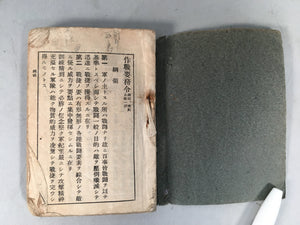 作戰要務令
綱領
第一 軍ノ主トスル所ハ戰鬪ナリ故ニ百事皆戰鬪ヲ以テ
基準トスヘシ而シテ戰鬪一般ノ目的ハ敵ヲ壓倒殲滅シテ
迅速ニ戰捷ヲ獲得スルニ在リ
第二 戰捷ノ要ハ有形無形ノ各種戰鬪要素ヲ綜合シテ敵
ニ優ル威力ヲ要點ニ集中發揮セシムルニ在リ
訓練精到ニシテ必勝ノ信念堅ク軍紀至嚴ニシテ攻擊精神
充溢セル軍隊ハ能ク物質的威力ヲ凌駕シテ戰捷ヲ完ウシ
得ルモノトス
綱領